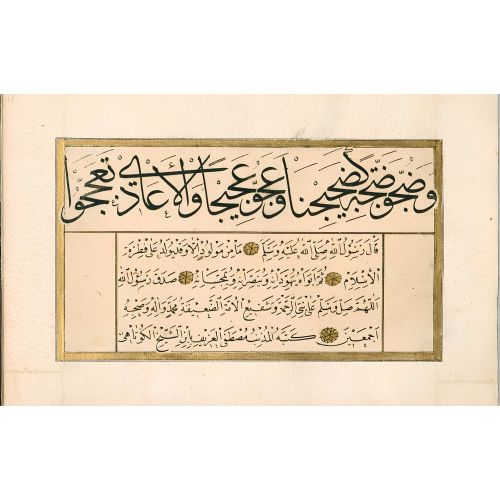 وعجوا عجيجا والأعادي تعججوا
قال رسول الله صلى الله عليه وسلم ما من مولود الا وقد ولد على فطرة
الاسلام ثم ابواه يهودانه وينصرانه ويمجسانه صدق رسول الله
اللهم صل وسلم على نبي الرحمة وشفيع الامة الضعيفة محمد واله وصحبه
اجمعين كتبه المذنب مصطفى العريف بابن الشيخ الكوتاهي